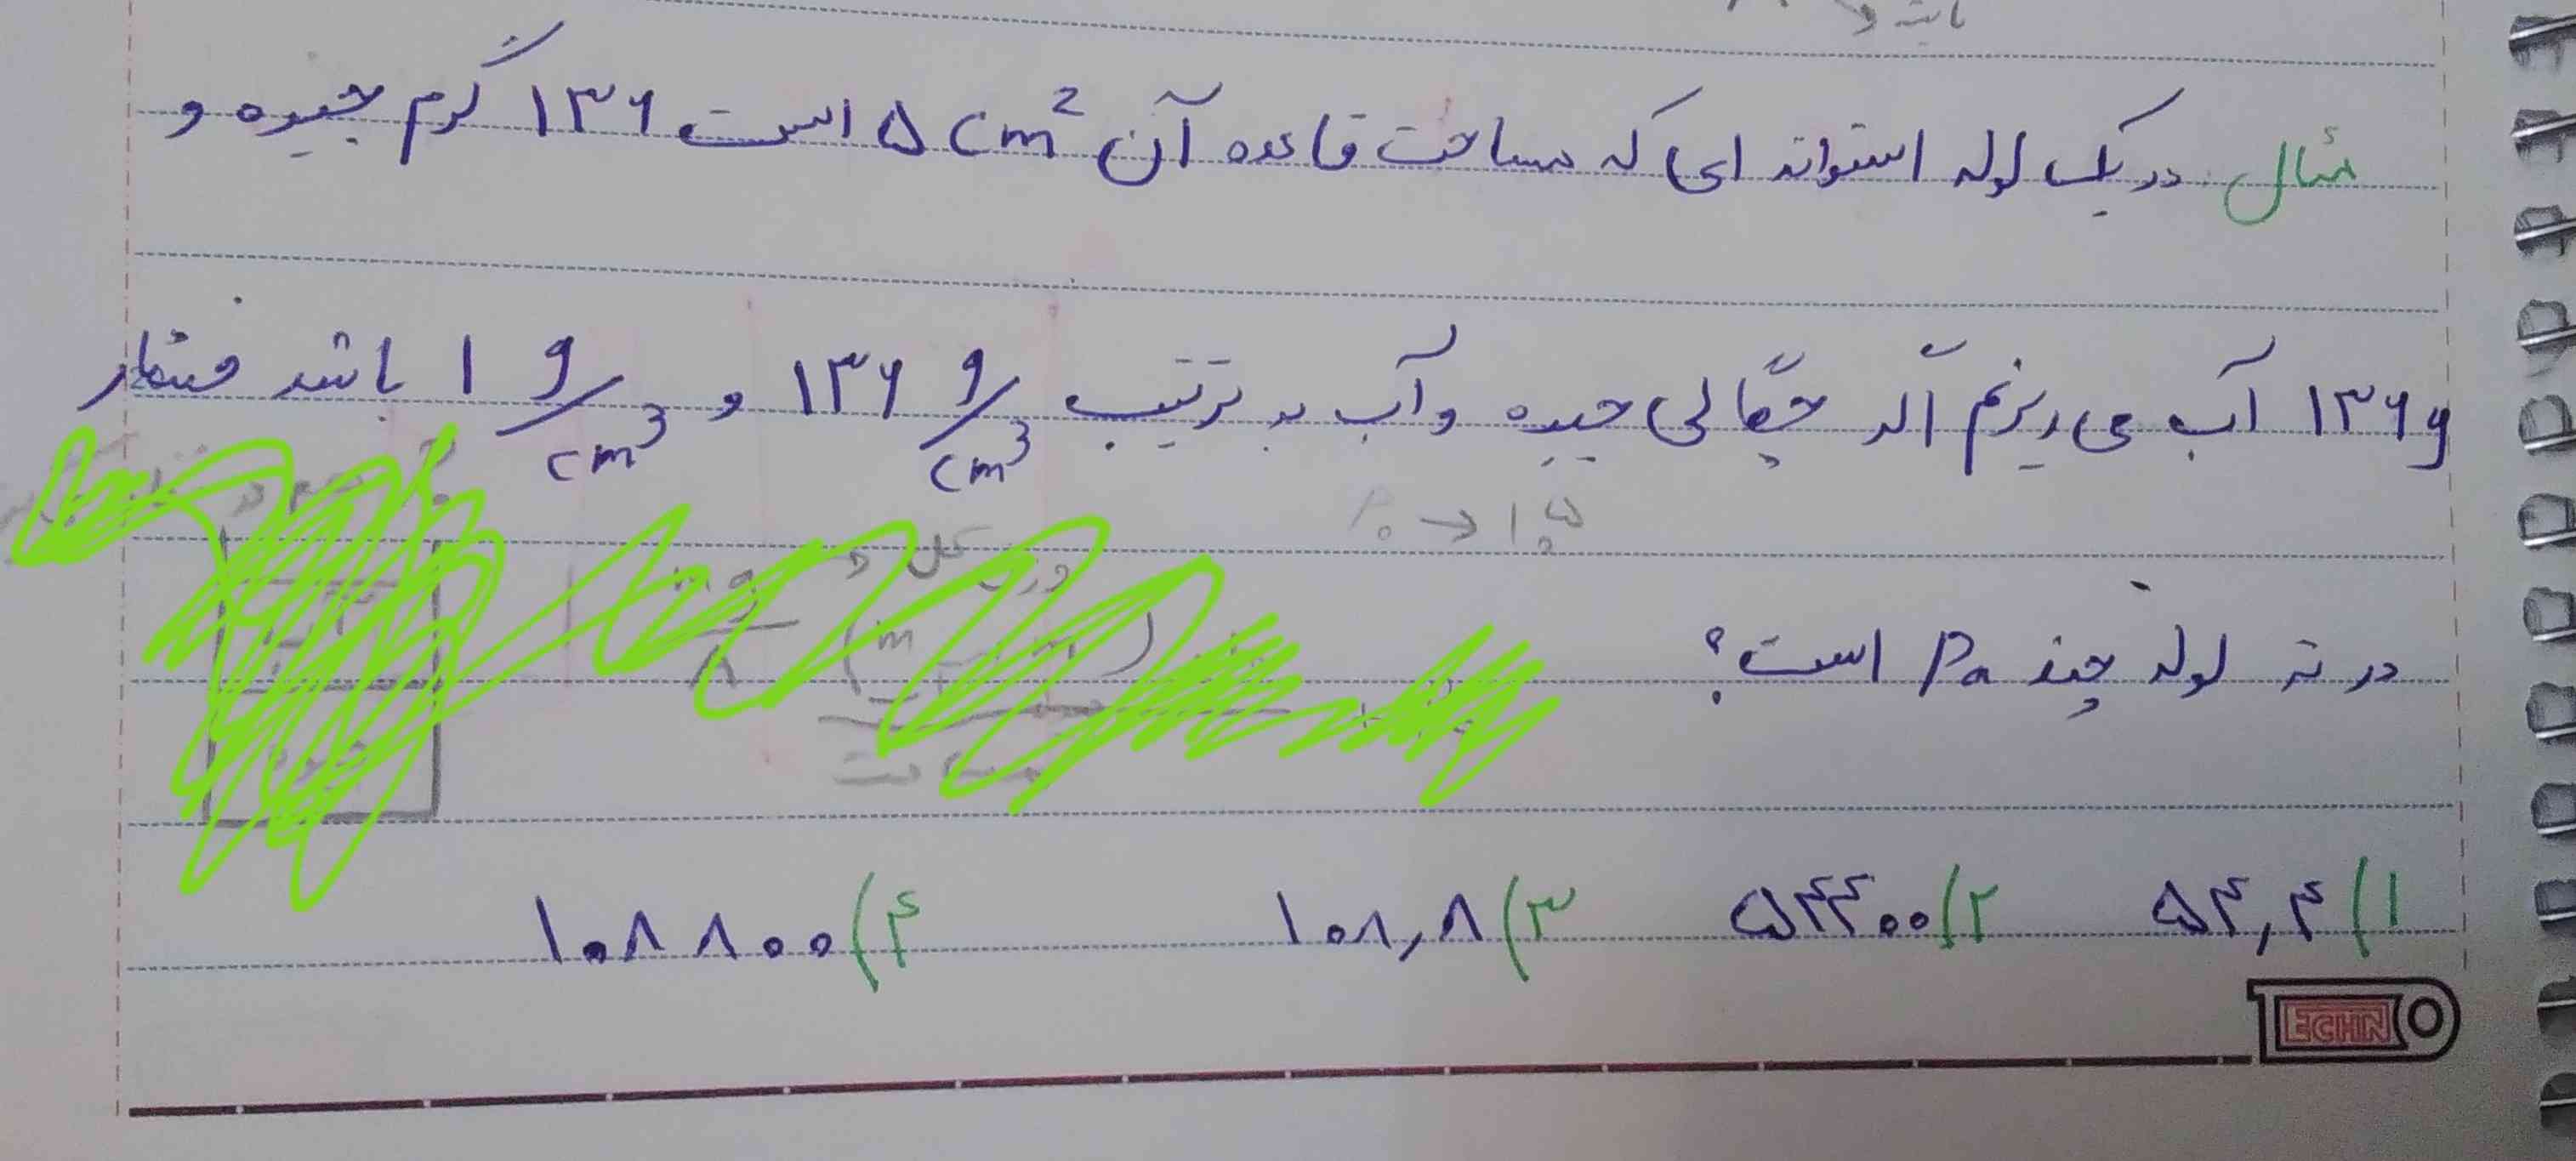 مثال: در یک لوله استوانه ای که مساحت قاعده آن ۵ cm² است ۱۳۶ گرم جیوه و
۱۳۶g آب می ریزیم اگر چگالی جیوه و آب به ترتیب ۱۳۶ g/cm³ و ۱ g/cm³ باشد فشار
P₀ → ۱۰⁵
وزن کل
در ته لوله چند Pa است؟
مساحت
۱) ۵۴,۴ ۲) ۵۴۴۰۰ ۳) ۱۰۸,۸ ۴) ۱۰۸۸۰۰
TECHNO